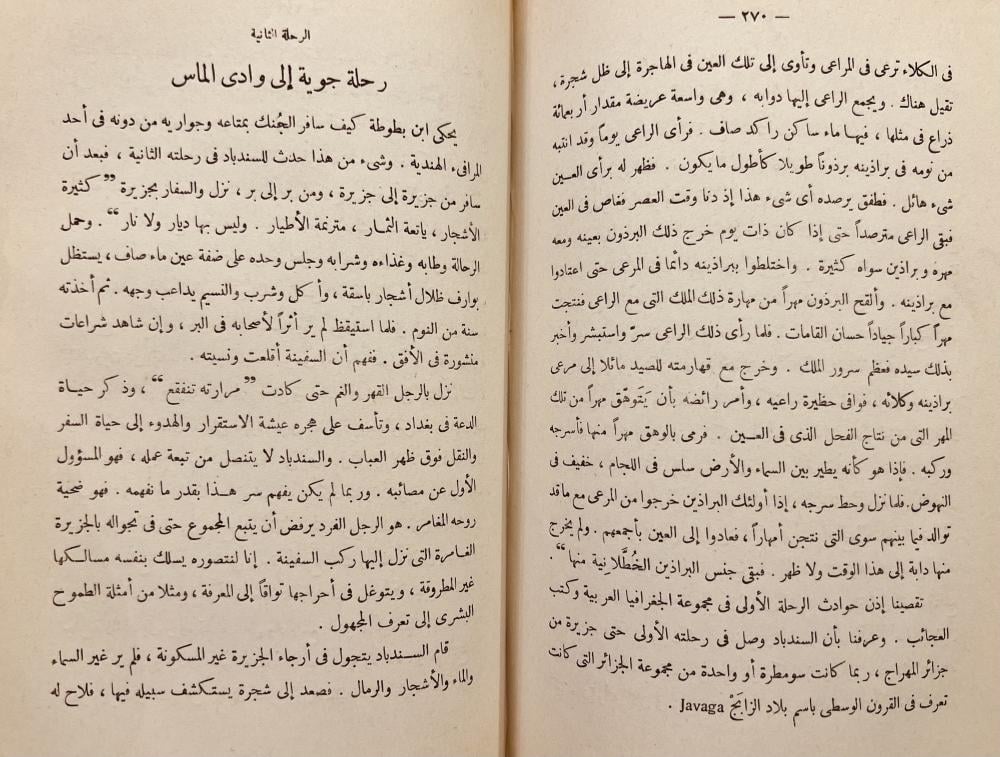 — ٢٧٠ —
فى الكلاء ترعى فى المراعى وتأوى إلى تلك العين فى الهاجرة إلى ظل شجرة ،
تقيل هناك . ويجمع الراعى إليها دوابه ، وهى واسعة عريضة مقدار أربعمائة
ذراع فى مثلها ، فيها ماء ساكن راكد صاف . فرأى الراعى يوماً وقد انتبه
من نومه فى براذينه برذوناً طويلا كأطول ما يكون . فظهر له برأى العين
شىء هائل . فطفق يرصده أى شىء هذا إذ دنا وقت العصر فغاص فى العين
فبقى الراعى مترصداً حتى إذا كان ذات يوم خرج ذلك البرذون بعينه ومعه
مهرة وبراذين سواه كثيرة . واختلطوا ببراذينه دائما فى المرعى حتى اعتادوا
مع براذينه . وألقح البرذون مهراً من مهارة ذلك الملك التى مع الراعى فنتجت
مهراً كباراً جياداً حسان القامات . فلما رأى ذلك الراعى سرّ واستبشر وأخبر
بذلك سيده فعظم سرور الملك . وخرج مع قهارمته للصيد مائلا إلى مرعى
براذينه وكلائه ، فوافى حظيرة راعيه ، وأمر رائضه بأن يَتَوهّق مهراً من تلك
المهر التى من نتاج الفحل الذى فى العين . فرمى بالوهق مهراً منها فأسرجه
وركبه . فإذا هو كأنه يطير بين السماء والأرض سلس فى اللجام ، خفيف فى
النهوض . فلما نزل وحط سرجه ، إذا أولئك البراذين خرجوا من المرعى مع ما قد
توالد فيا بينهم سوى التى نتجن أمهاراً ، فعادوا إلى العين بأجمعهم . ولم يخرج
منها دابة إلى هذا الوقت ولا ظهر . فبقى جنس البراذين الخُطَّلانية منها“ .
تقصينا إذن حوادث الرحلة الأولى فى مجموعة الجغرافيا العربية وكتب
العجائب . وعرفنا بأن السندباد وصل فى رحلته الأولى حتى جزيرة من
جزائر المهراج ، ربما كانت سومطرة أو واحدة من مجموعة الجزائر التى كانت
تعرف فى القرون الوسطى باسم بلاد الزابَجْ Javaga .
الرحلة الثانية
رحلة جوية إلى وادى الماس
يحكى ابن بطوطة كيف سافر الجُنك بمتاعه وجواريه من دونه فى أحد
المرافىء الهندية . وشىء من هذا حدث للسندباد فى رحلته الثانية ، فبعد أن
سافر من جزيرة إلى جزيرة ، ومن بر إلى بر ، نزل والسفار بجزيرة ”كثيرة
الأشجار ، يانعة الثمار ، مترنمة الأطيار . وليس بها ديار ولا نار“ . وحمل
الرحالة وطابه وغذاءه وشرابه وجلس وحده على ضفة عين ماء صاف ، يستظل
بوارف ظلال أشجار باسقة ، وأكل وشرب والنسيم يداعب وجهه . ثم أخذته
سنة من النوم . فلما استيقظ لم ير أثراً لأصحابه فى البر ، وإن شاهد شراعات
منشورة فى الأفق . ففهم أن السفينة أقلعت ونسيته .
نزل بالرجل القهر والغم حتى كادت ”مرارته تنفقع“ ، وذكر حياة
الدعة فى بغداد ، وتأسف على هجره عيشة الاستقرار والهدوء إلى حياة السفر
والنقل فوق ظهر العباب . والسندباد لا يتنصل من تبعة عمله ، فهو المسؤول
الأول عن مصائبه . وربما لم يكن يفهم سر هذا بقدر ما نفهمه . فهو ضحية
روحه المغامر . هو الرجل الفرد يرفض أن يتبع المجموع حتى فى تجواله بالجزيرة
الغامرة التى نزل إليها ركب السفينة . إنا لنتصوره يسلك بنفسه مسالكها
غير المطروقة ، ويتوغل فى أحراجها تواقاً إلى المعرفة ، ومثلا من أمثلة الطموح
البشرى إلى تعرف المجهول .
قام السندباد يتجول فى أرجاء الجزيرة غير المسكونة ، فلم ير غير السماء
والماء والأشجار والرمال . فصعد إلى شجرة يستكشف سبيله فيها ، فلاح له